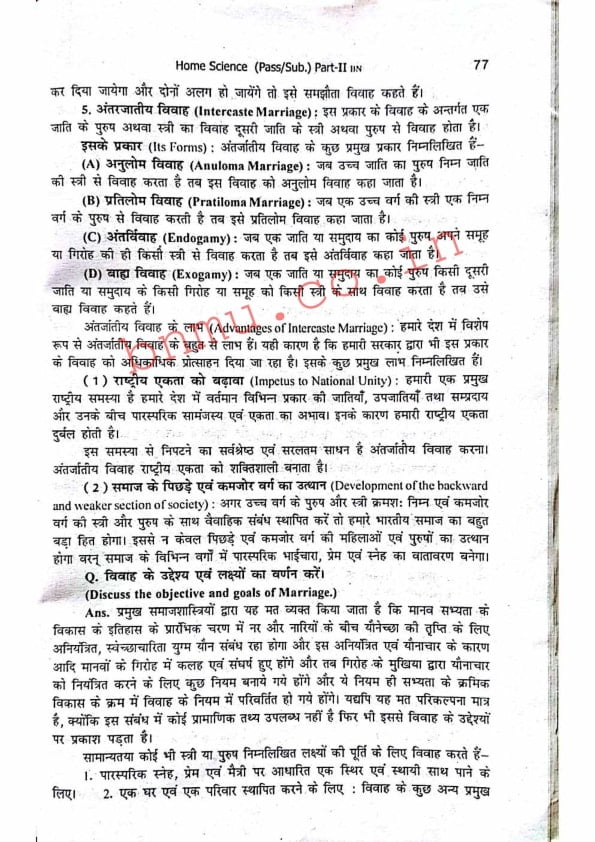 Home Science (Pass/Sub.) Part-II IIN 77
कर दिया जायेगा और दोनों अलग हो जायेंगे तो इसे समझौता विवाह कहते हैं।
5. अंतरजातीय विवाह (Intercaste Marriage) : इस प्रकार के विवाह के अन्तर्गत एक
जाति के पुरुष अथवा स्त्री का विवाह दूसरी जाति के स्त्री अथवा पुरुष से विवाह होता है।
इसके प्रकार (Its Forms) : अंतर्जातीय विवाह के कुछ प्रमुख प्रकार निम्नलिखित हैं–
(A) अनुलोम विवाह (Anuloma Marriage) : जब उच्च जाति का पुरुष निम्न जाति
की स्त्री से विवाह करता है तब इस विवाह को अनुलोम विवाह कहा जाता है।
(B) प्रतिलोम विवाह (Pratiloma Marriage) : जब एक उच्च वर्ग की स्त्री एक निम्न
वर्ग के पुरुष से विवाह करती है तब इसे प्रतिलोम विवाह कहा जाता है।
(C) अंतर्विवाह (Endogamy) : जब एक जाति या समुदाय का कोई पुरुष अपने समूह
या गिरोह की ही किसी स्त्री से विवाह करता है तब इसे अंतर्विवाह कहा जाता है।
(D) बाह्य विवाह (Exogamy) : जब एक जाति या समुदाय का कोई पुरुष किसी दूसरी
जाति या समुदाय के किसी गिरोह या समूह को किसी स्त्री के साथ विवाह करता है तब उसे
बाह्य विवाह कहते हैं।
अंतर्जातीय विवाह के लाभ (Advantages of Intercaste Marriage) : हमारे देश में विशेष
रूप से अंतर्जातीय विवाह के बहुत से लाभ हैं। यही कारण है कि हमारी सरकार द्वारा भी इस प्रकार
के विवाह को अधिकाधिक प्रोत्साहन दिया जा रहा है। इसके कुछ प्रमुख लाभ निम्नलिखित हैं।
(1) राष्ट्रीय एकता को बढ़ावा (Impetus to National Unity) : हमारी एक प्रमुख
राष्ट्रीय समस्या है हमारे देश में वर्तमान विभिन्न प्रकार की जातियाँ, उपजातियाँ तथा सम्प्रदाय
और उनके बीच पारस्परिक सामंजस्य एवं एकता का अभाव। इनके कारण हमारी राष्ट्रीय एकता
दुर्बल होती है।
इस समस्या से निपटने का सर्वश्रेष्ठ एवं सरलतम साधन है अंतर्जातीय विवाह करना।
अंतर्जातीय विवाह राष्ट्रीय एकता को शक्तिशाली बनाता है।
(2) समाज के पिछड़े एवं कमजोर वर्ग का उत्थान (Development of the backward
and weaker section of society) : अगर उच्च वर्ग के पुरुष और स्त्री क्रमशः निम्न एवं कमजोर
वर्ग की स्त्री और पुरुष के साथ वैवाहिक संबंध स्थापित करें तो हमारे भारतीय समाज का बहुत
बड़ा हित होगा। इससे न केवल पिछड़े एवं कमजोर वर्ग की महिलाओं एवं पुरुषों का उत्थान
होगा वरन् समाज के विभिन्न वर्गों में पारस्परिक भाईचारा, प्रेम एवं स्नेह का वातावरण बनेगा।
Q. विवाह के उद्देश्य एवं लक्ष्यों का वर्णन करें।
(Discuss the objective and goals of Marriage.)
Ans. प्रमुख समाजशास्त्रियों द्वारा यह मत व्यक्त किया जाता है कि मानव सभ्यता के
विकास के इतिहास के प्रारंभिक चरण में नर और नारियों के बीच यौनेच्छा की तृप्ति के लिए
अनियंत्रित, स्वेच्छाचारिता युग्म यौन संबंध रहा होगा और इस अनियंत्रित एवं यौनाचार के कारण
आदि मानवों के गिरोह में कलह एवं संघर्ष हुए होंगे और तब गिरोह के मुखिया द्वारा यौनाचार
को नियंत्रित करने के लिए कुछ नियम बनाये गये होंगे और ये नियम ही सभ्यता के क्रमिक
विकास के क्रम में विवाह के नियम में परिवर्तित हो गये होंगे। यद्यपि यह मत परिकल्पना मात्र
है, क्योंकि इस संबंध में कोई प्रामाणिक तथ्य उपलब्ध नहीं है फिर भी इससे विवाह के उद्देश्यों
पर प्रकाश पड़ता है।
सामान्यतया कोई भी स्त्री या पुरुष निम्नलिखित लक्ष्यों की पूर्ति के लिए विवाह करते हैं–
1. पारस्परिक स्नेह, प्रेम एवं मैत्री पर आधारित एक स्थिर एवं स्थायी साथ पाने के
लिए। 2. एक घर एवं एक परिवार स्थापित करने के लिए : विवाह के कुछ अन्य प्रमुख
bnmu.co.in